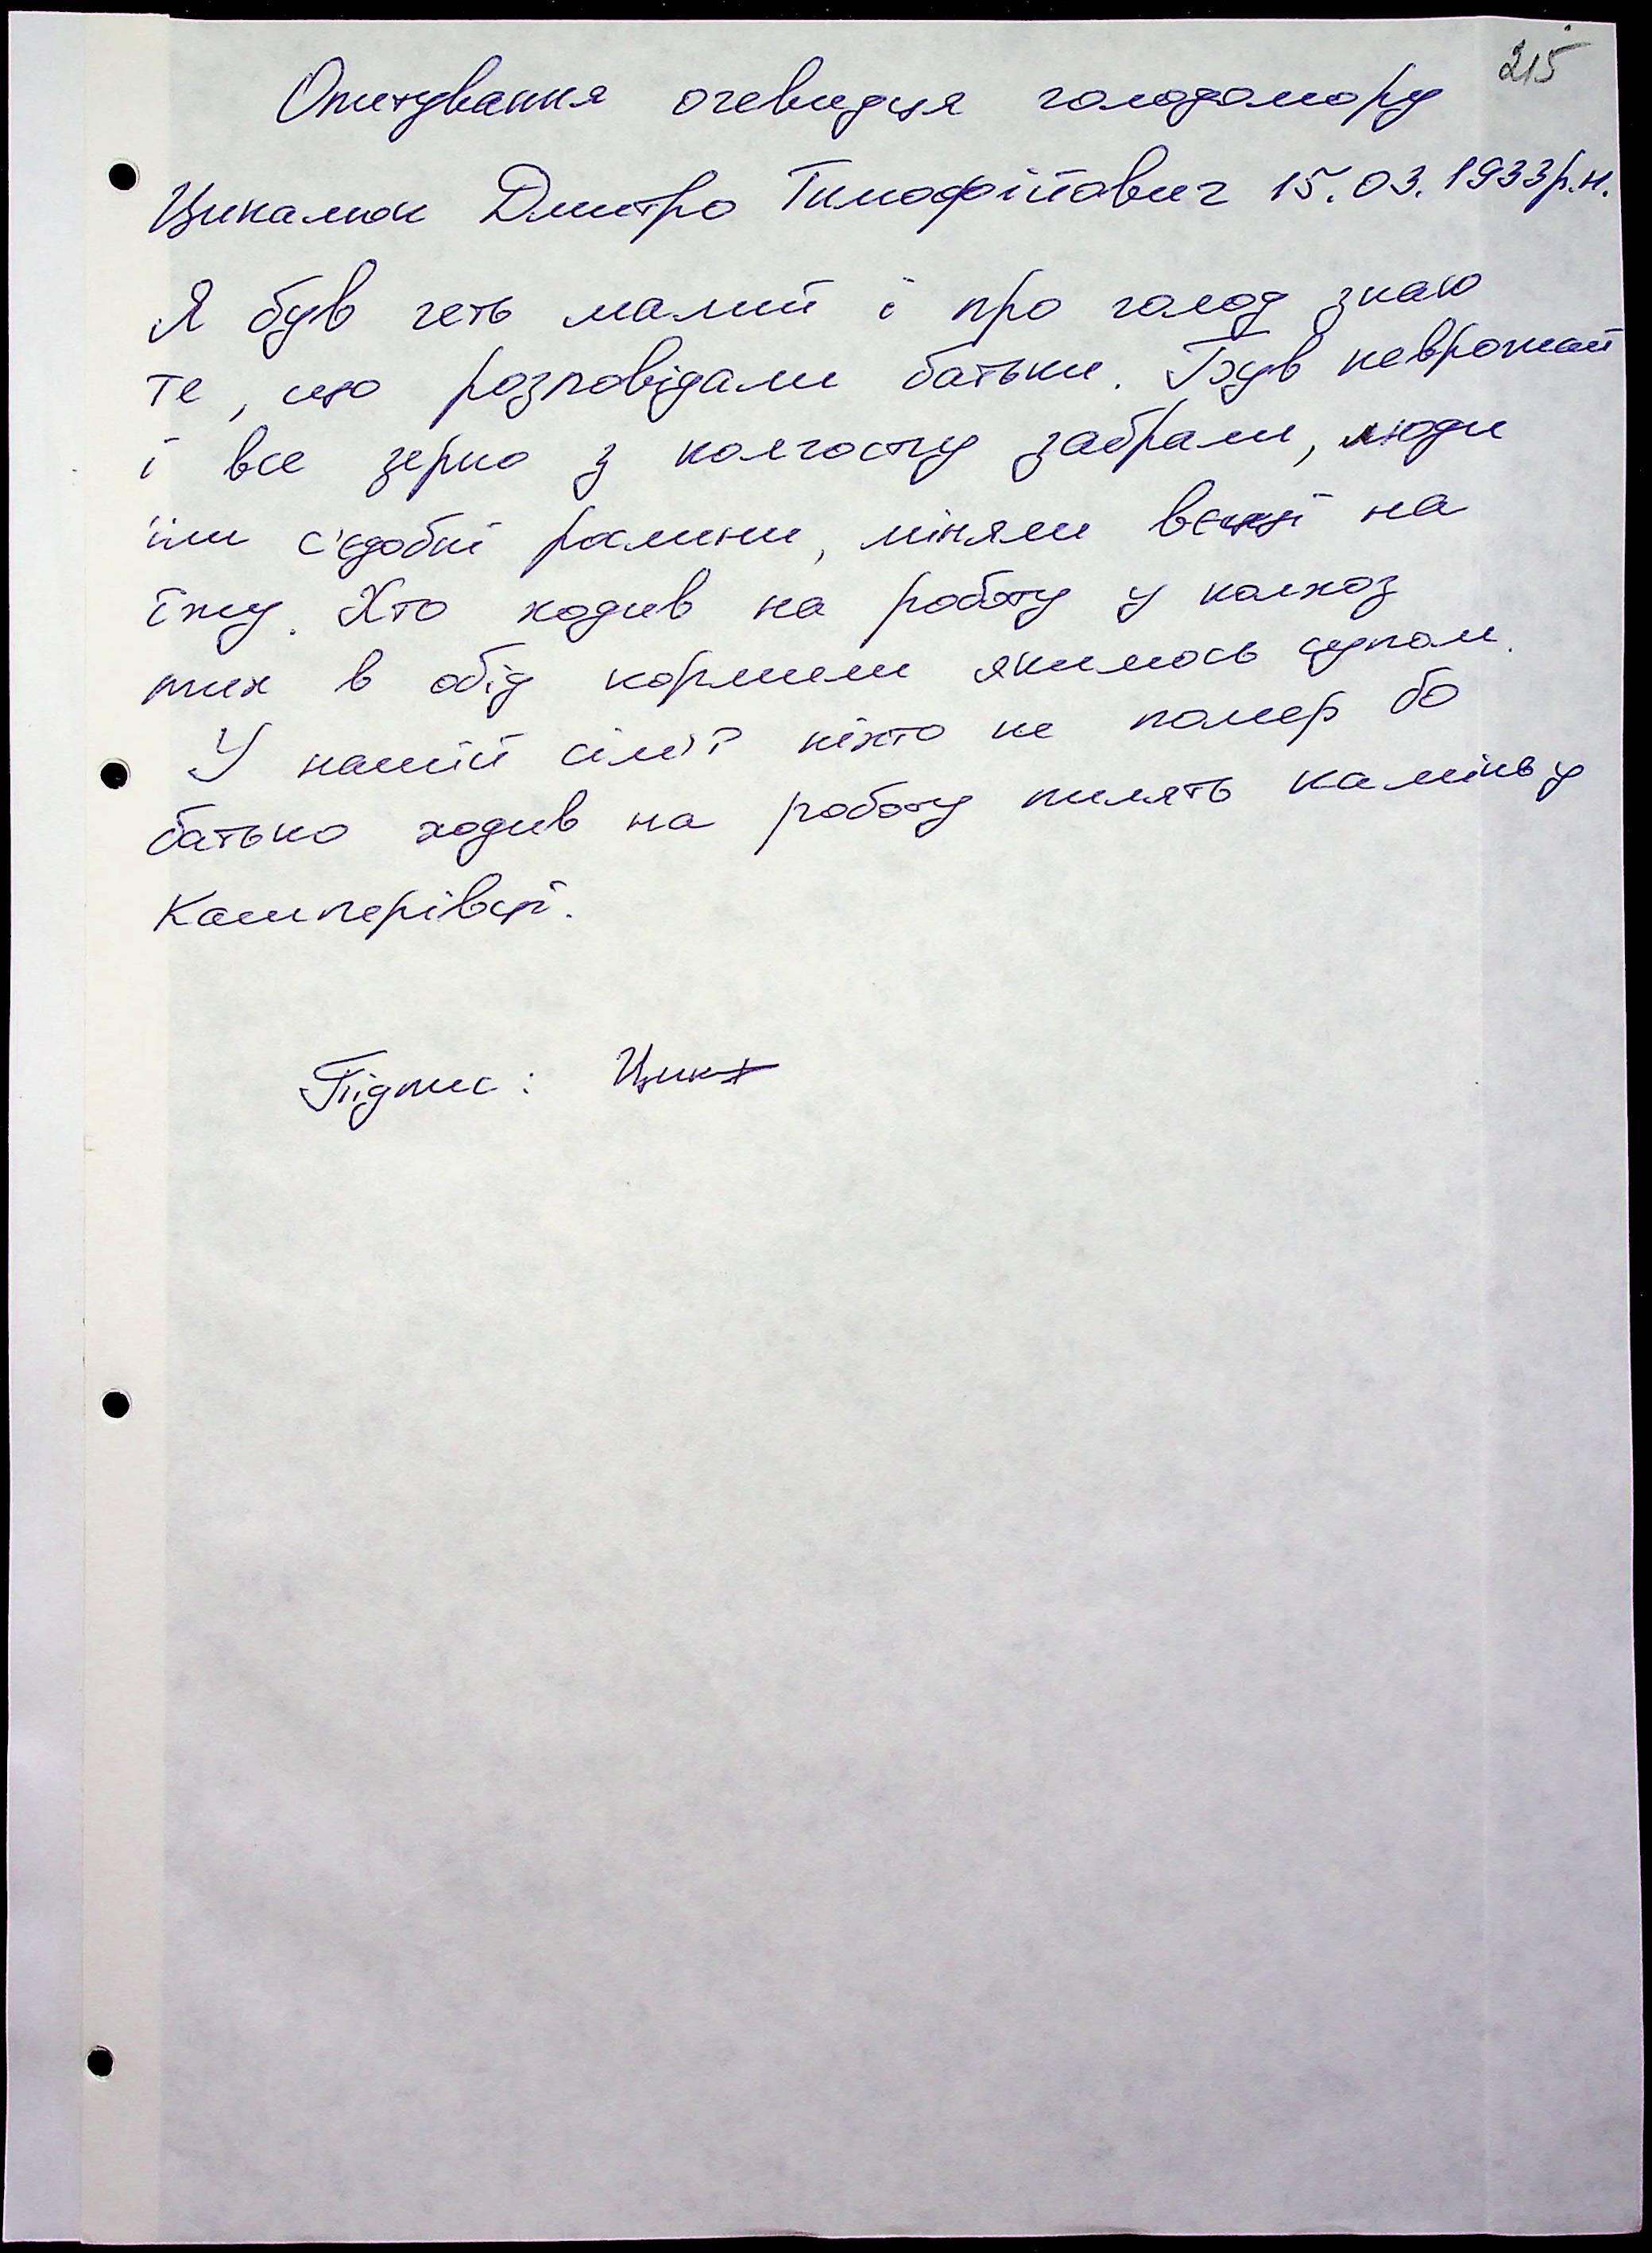 215
Опитування очевидця голодомору
Цикалюк Дмитро Тимофійович 15.03.1933р.н.
Я був геть малий і про голод знаю
те, що розповідали батьки. Був неврожай
і все зерно з колгоспу забрали, люди
їли с'єдобні рослини, міняли на
їжу. Хто ходив на роботу у колхоз
тих в обід кормили якимось супом.
У нашій сім'ї ніхто не помер бо
батько ходив на роботу пилять камінь у
Кашперівці.
Підпис: